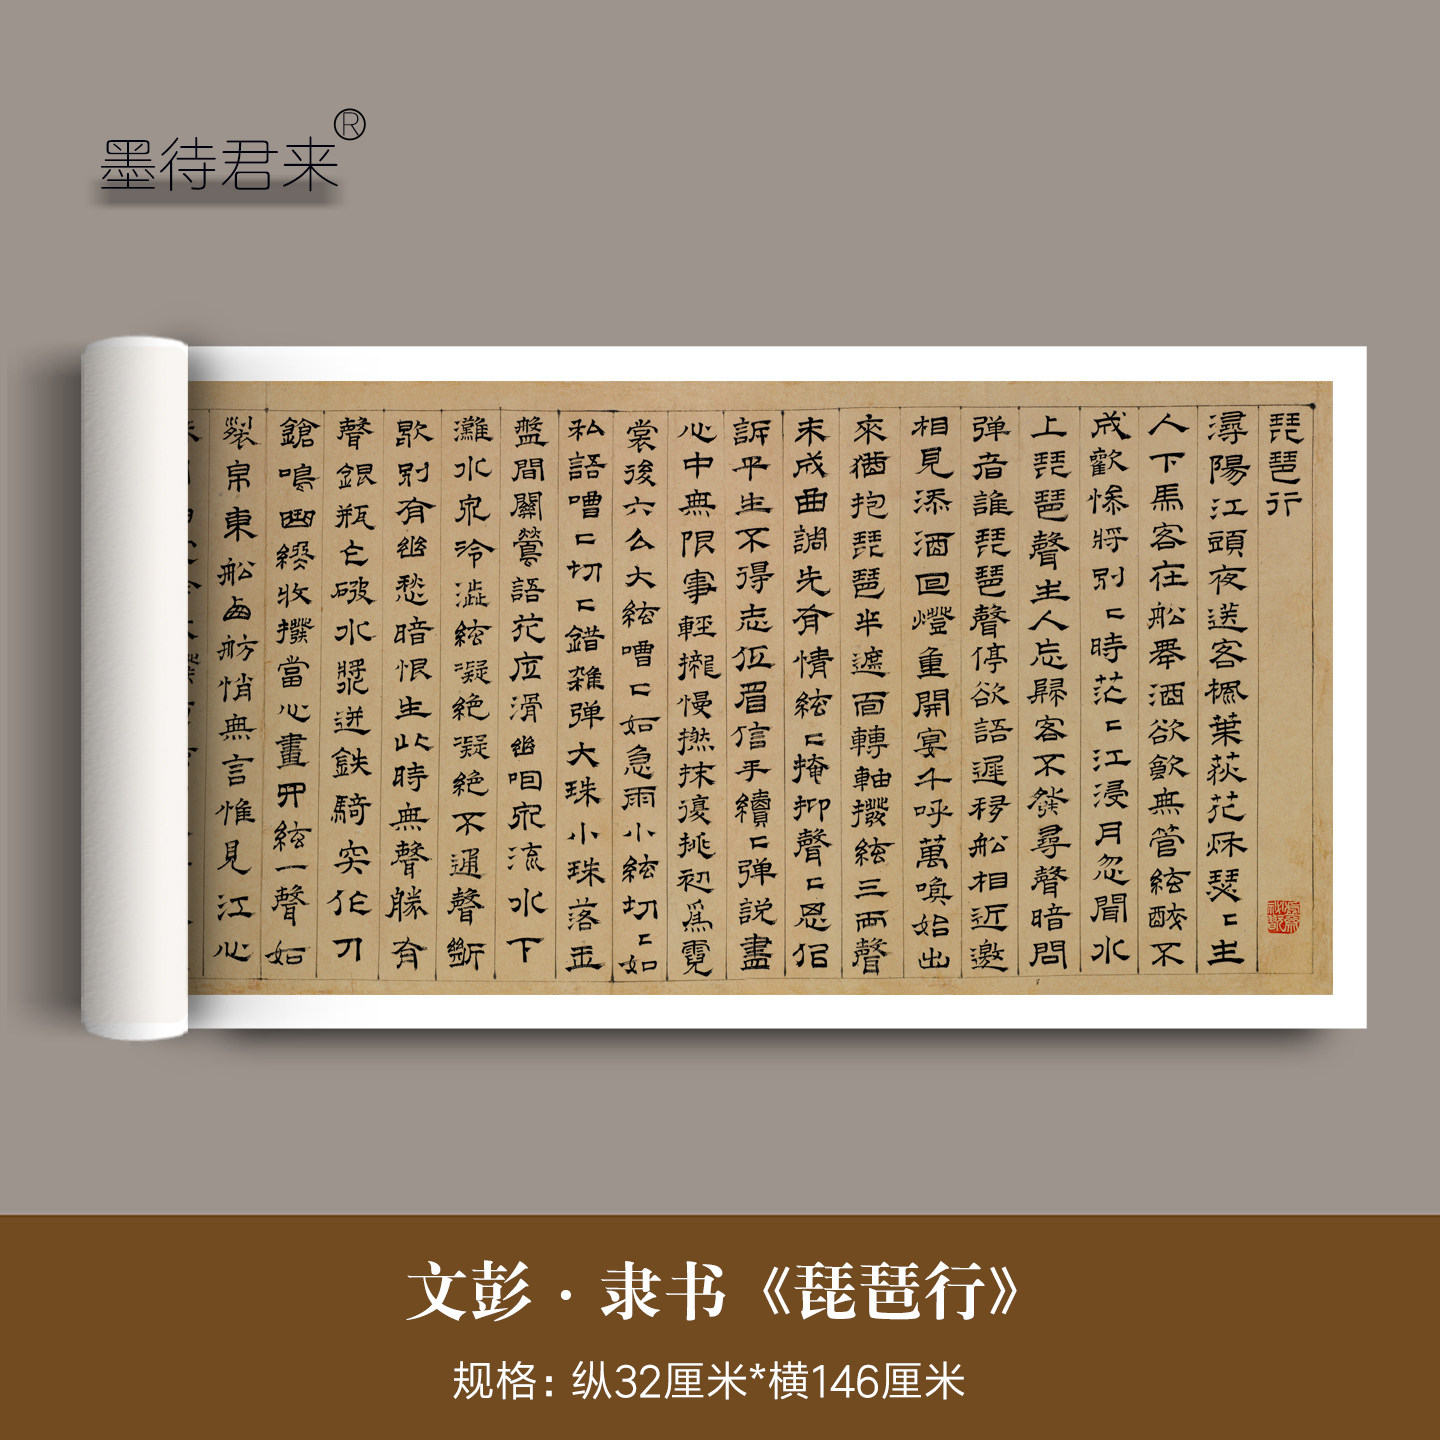 墨待君来®
琵琶行
潯陽江頭夜送客楓葉荻花秋瑟〻主
人下馬客在船舉酒欲飲無管絃醉不
成歡慘將別〻時茫〻江浸月忽聞水
上琵琶聲主人忘歸客不發尋聲暗問
弹者誰琵琶聲停欲語遲移船相近邀
相見添酒回燈重開宴千呼萬喚始出
來猶抱琵琶半遮面轉軸撥絃三兩聲
未成曲調先有情絃〻掩抑聲〻思似
訴平生不得志低眉信手續〻弹說盡
心中無限事輕攏慢撚抹復挑初爲霓
裳後六么大絃嘈〻如急雨小絃切〻如
私語嘈〻切〻錯雜弹大珠小珠落玉
盤間關鶯語花底滑幽咽泉流水下
灘水泉冷澁絃凝絶凝絶不通聲漸
歇別有幽愁暗恨生此時無聲勝有
聲銀瓶乍破水漿迸鉄騎突作刀
鎗鳴曲終收撥當心畫四絃一聲如
裂帛東船西舫悄無言惟見江心
文彭·隶书《琵琶行》
规格：纵32厘米*横146厘米